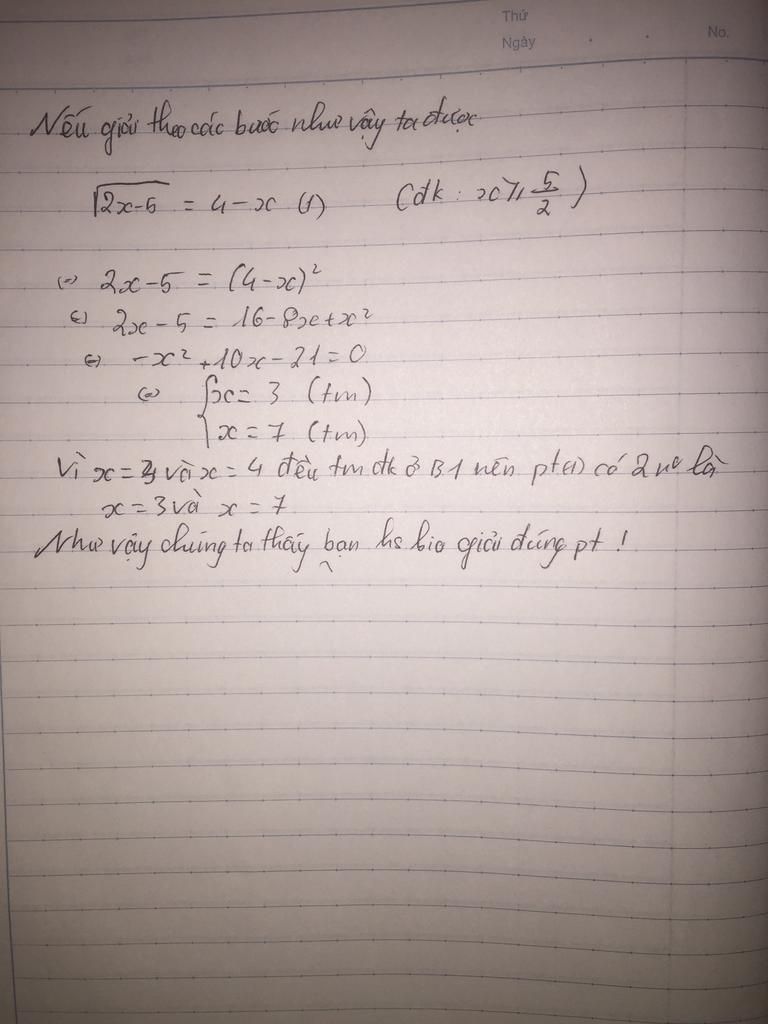 Thứ
Ngày . . No.
Nếu giải theo các bước như vậy ta được
√2x-5 = 4-x (1) (đk: x ≥ 5/2)
(=) 2x-5 = (4-x)²
(=) 2x-5 = 16-8x+x²
(=) -x²+10x-21=0
(=) { x = 3 (tm)
x = 7 (tm)
Vì x = và x = 4 đều tm đk ở B1 nên pt(1) có 2 no là
x = 3 và x = 7
Như vậy chúng ta thấy bạn hs giải đúng pt !